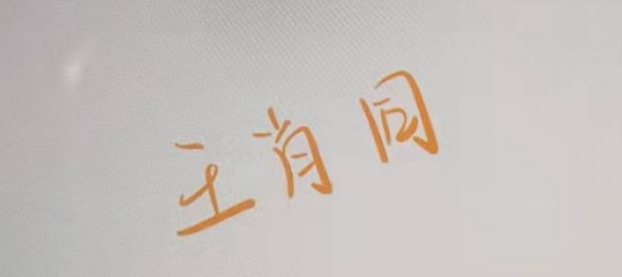 王肖同